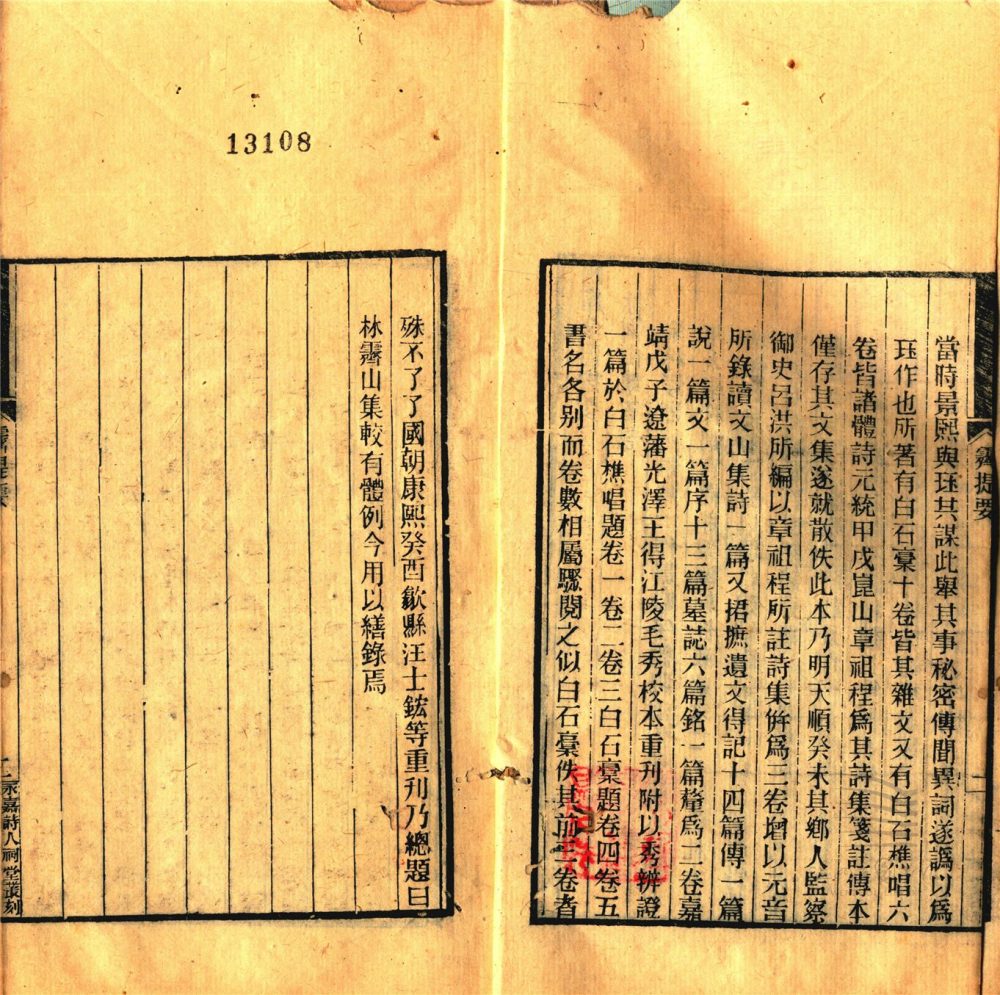 13108
霽提要
當時景熙與珏其謀此舉其事秘密傳聞異詞遂譌以爲
珏作也所著有白石稾十卷皆其雜文又有白石樵唱六
卷皆諸體詩元統甲戌崑山章祖程爲其詩集箋註傳本
僅存其文集遂就散佚此本乃明天順癸未其鄉人監察
御史呂洪所編以章祖程所註詩集倂爲三卷增以元音
所錄讀文山集詩一篇又捃摭遺文得記十四篇傳一篇
說一篇文一篇序十三篇墓誌六篇銘一篇釐爲二卷嘉
靖戊子遼藩光澤王得江陵毛秀校本重刊附以秀辨證
一篇於白石樵唱題卷一卷二卷三白石稾題卷四卷五
書名各别而卷數相屬驟閱之似白石稾佚其前三卷者
殊不了了國朝康熙癸酉歙縣汪士鋐等重刊乃總題曰
林霽山集較有體例今用以繕錄焉
永嘉詩人祠堂叢刻